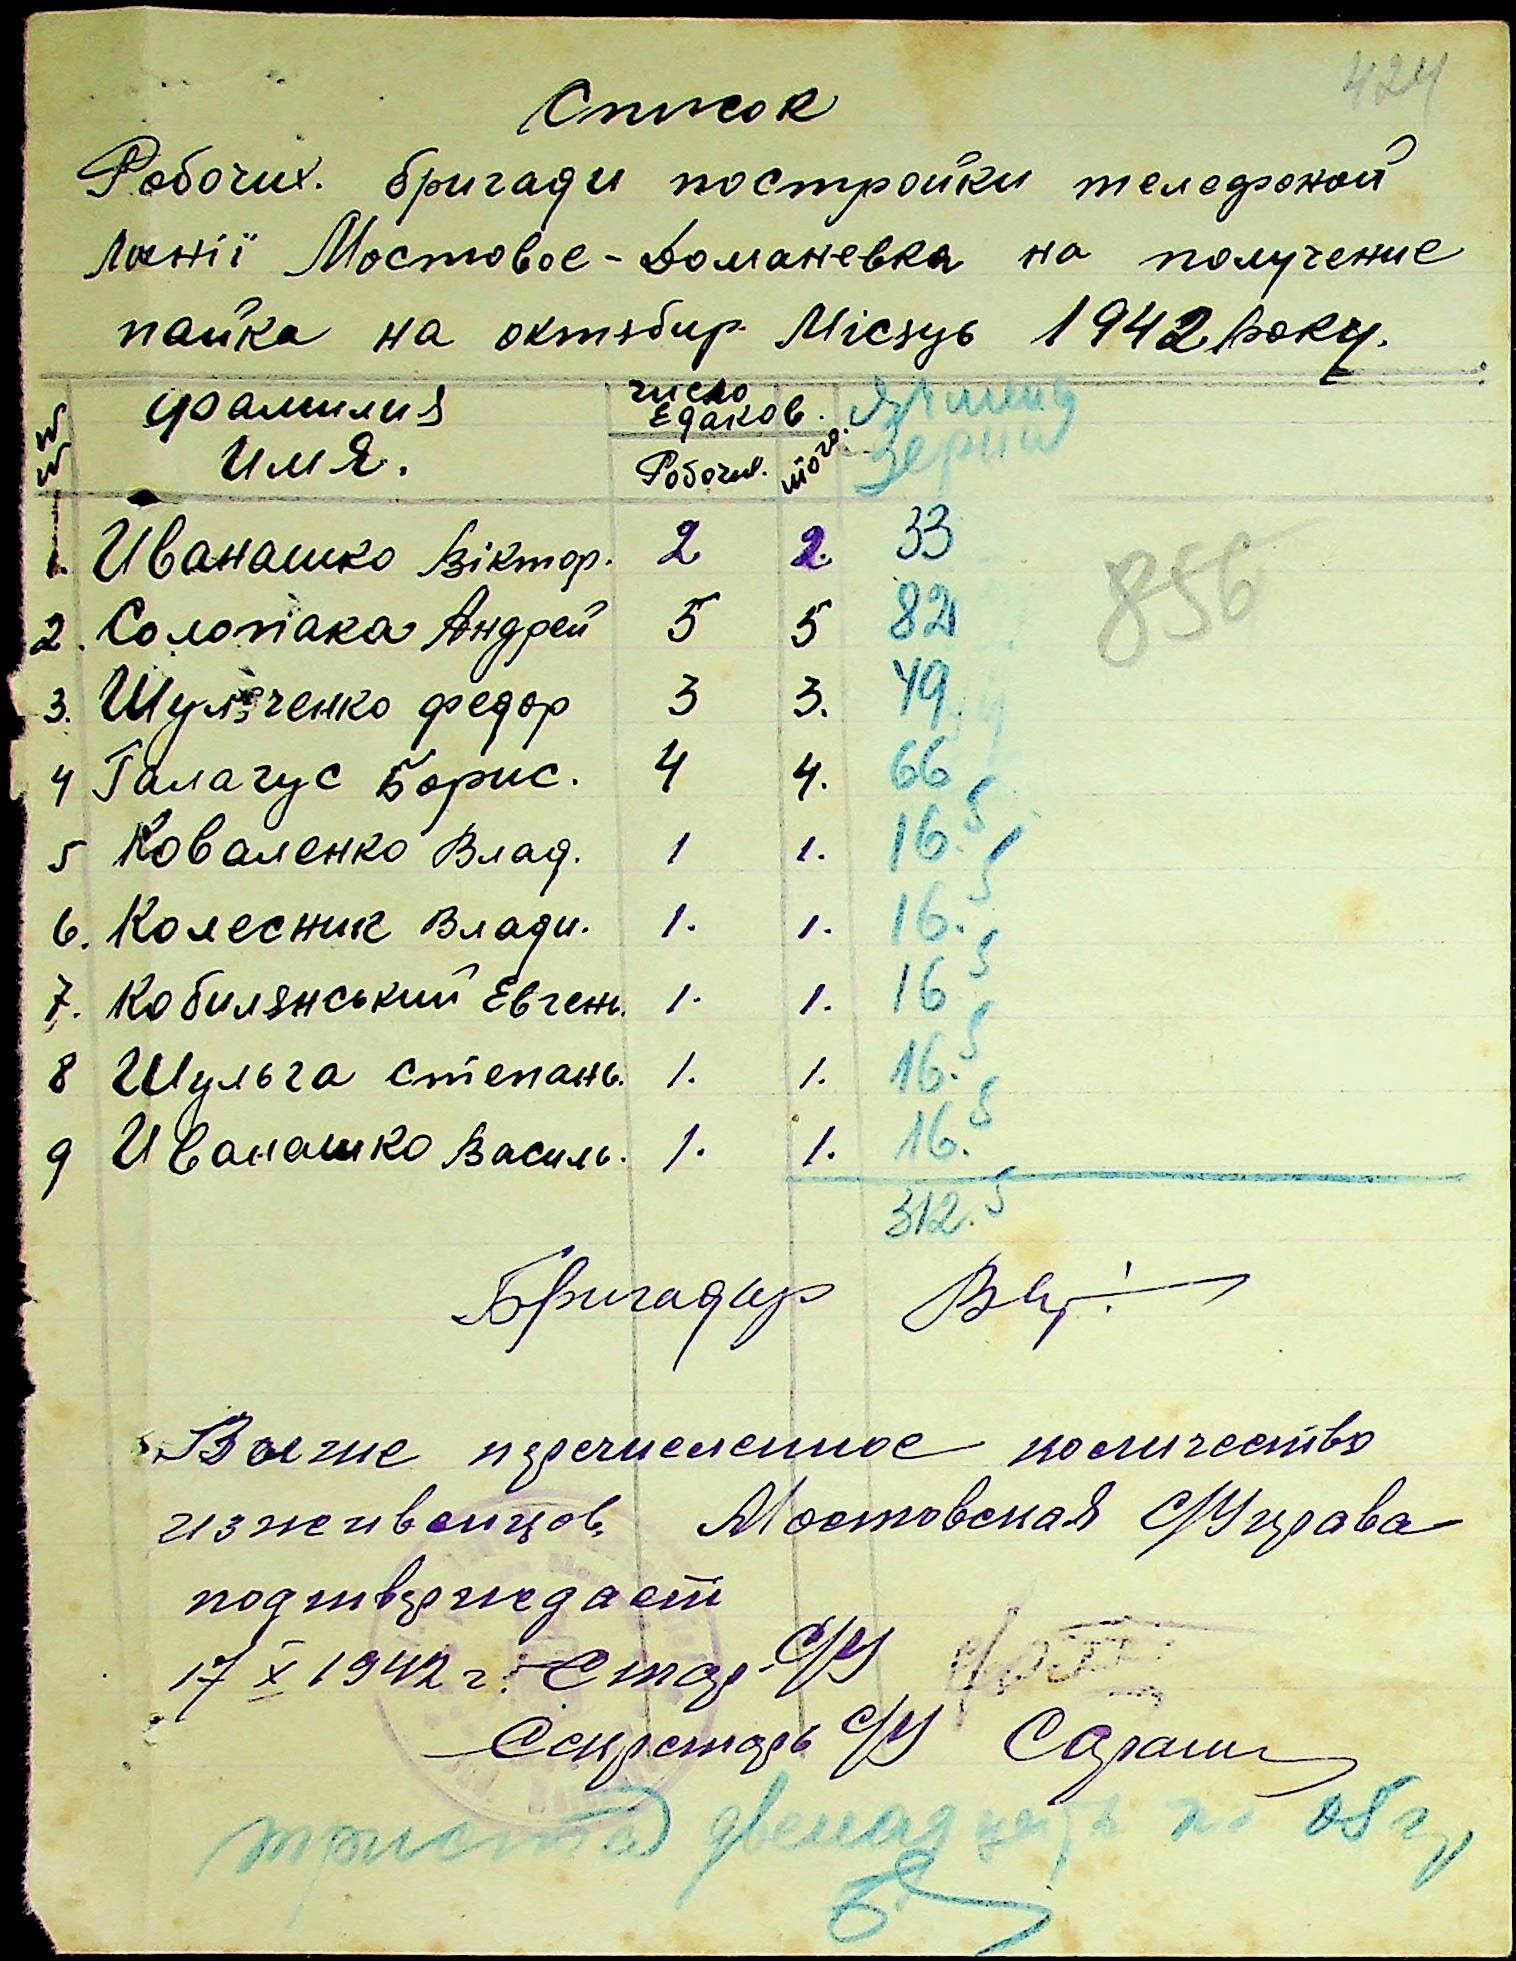 424
Список
Робочих. бригади постройки телефоной
линії Мостовое - Доманевка на получение
пайка на октябир Місяць 1942 року.
№№ фамилия Имя. число Едаков. Робочих. того. Ячмень Зерна
1. Иванашко Віктор. 2 2. 33
856
2. Солопака Андрей 5 5 82
3. Шуляченко федор 3 3. 49
4 Галагус Борис. 4 4. 66
5 Коваленко Влад. 1 1. 16.5
6. Колесник Влади. 1. 1. 16.5
7. Кобилянський Евгень. 1. 1. 16 5
8 Шульга степань. 1. 1. 16.5
9 Иванашко Василь. 1. 1. 16.5
312.5
Бригадир
Выше перечисленное количество
изживенцов Мостовская С/Управа
подтверждает
17 X 1942 г. Стар. С/У
Секретарь С/У
триста двенадцать